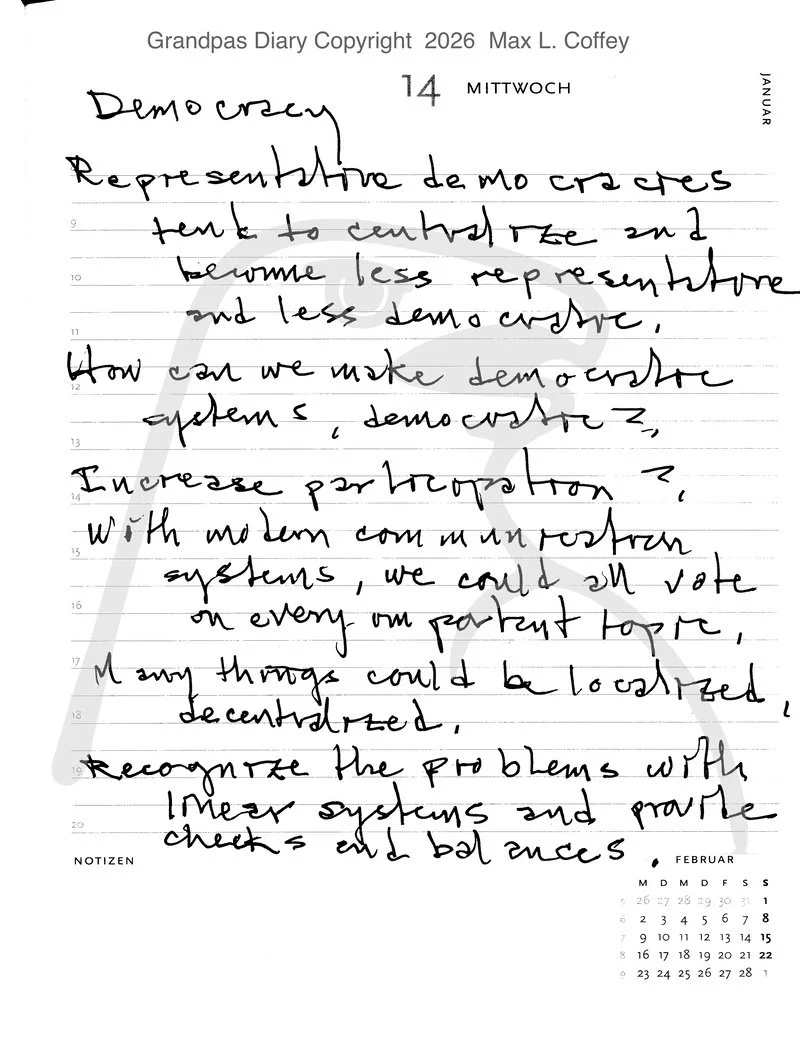 Grandpas Diary Copyright 2026 Max L. Coffey
14 MITTWOCH
JANUAR
Democracy
Representative democracies
tend to centralize and
become less representative
and less democratic.
How can we make democratic
systems, democratic?
Increase participation?
With modern communication
systems, we could all vote
on every important topic.
Many things could be localized,
decentralized.
Recognize the problems with
linear systems and provide
checks and balances.
9
10
11
12
13
14
15
16
17
18
19
20
NOTIZEN
FEBRUAR
M D M D F S S
5 26 27 28 29 30 31 1
6 2 3 4 5 6 7 8
7 9 10 11 12 13 14 15
8 16 17 18 19 20 21 22
9 23 24 25 26 27 28 1